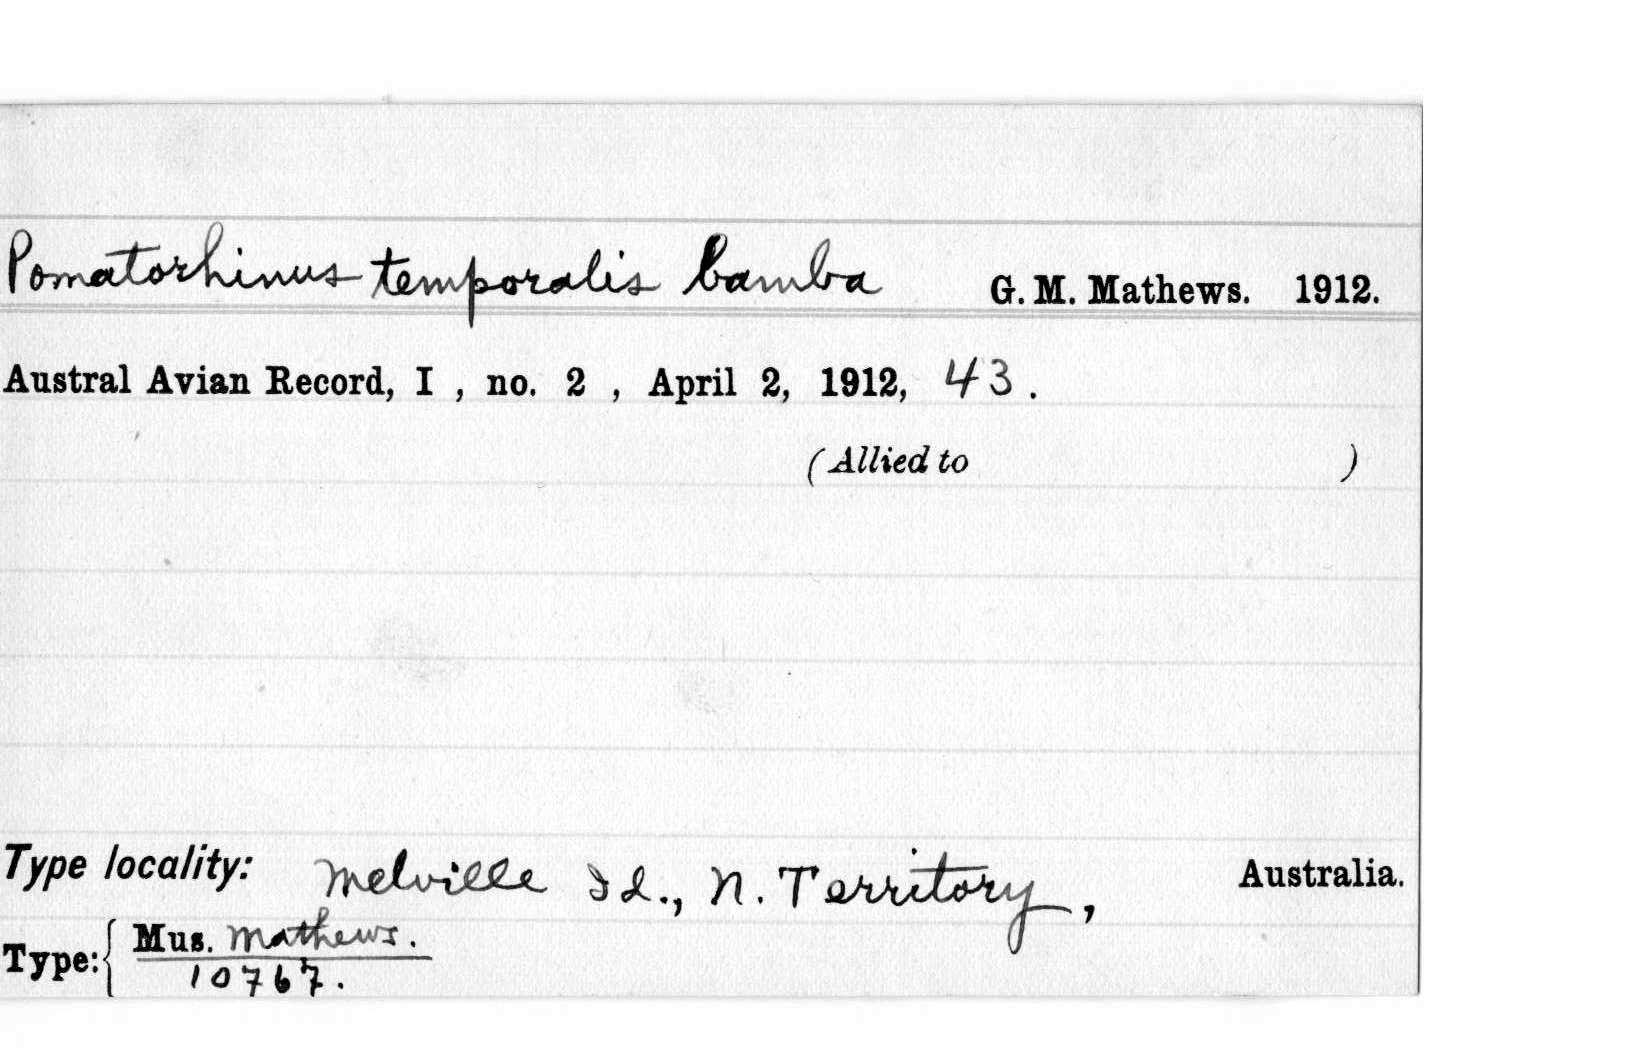 Pomatorhinus temporalis bamba G. M. Mathews. 1912.
Austral Avian Record, I , no. 2 , April 2, 1912, 43.
(Allied to )
Type locality: Melville Id., N. Territory, Australia.
Type: { Mus. Mathews.
10767.